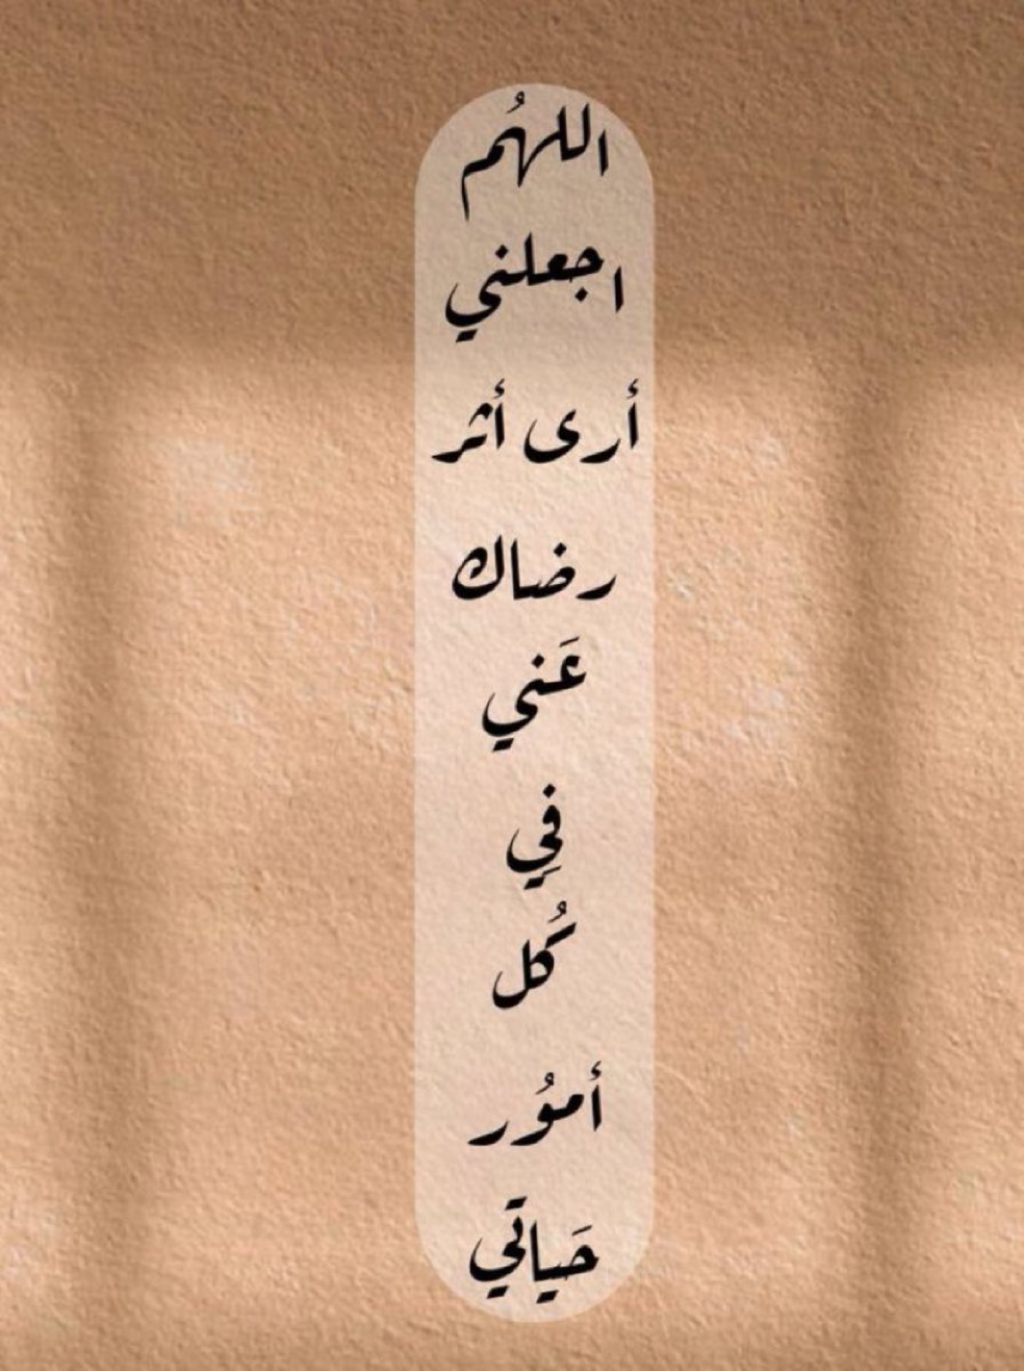 اللهُم
اجعلني
أرى أثر
رضاك
عَني
فيِ
كُل
أموُر
حَياتي